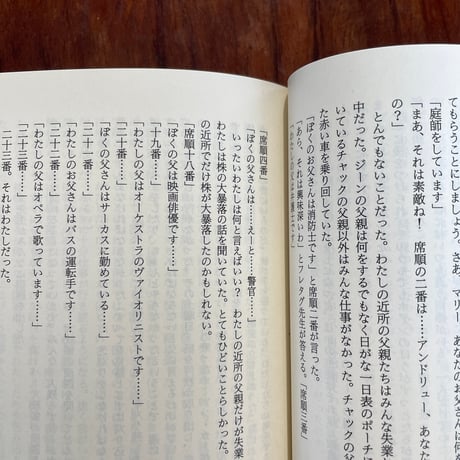 てもらうことにしましょう。さあ、マリー　あなたのお父さんは何を
「庭師をしています」
「まあ、それは素敵ね！　席順の二番は……アンドリュー、あなた
の？」
　とんでもないことだった。わたしの近所の父親たちはみんな失業
中だった。ジーンの父親は何をするでもなく日がな一日表のポーチに
いているチャックの父親以外はみんな仕事がなかった。チャックの父
た赤い車を乗り回していた。
「ぼくのお父さんは消防士です」と席順二番が言った。
「あら、それは興味深いわ」とフレタグ先生が答える。「席順三番」
「わたしの父は弁護士です」
「席順四番」
「ぼくの父さんは……えーと……警官……」
　いったいわたしは何と言えばいい？　わたしの近所の父親だけが失業
わたしは株の大暴落の話を聞いていた。とてもひどいことらしかった。
の近所でだけ株が大暴落したのかもしれない。
「席順十八番」
「ぼくの父は映画俳優です……」
「十九番……」
「わたしの父はオーケストラのヴァイオリニストです……」
「二十番……」
「ぼくの父さんはサーカスに勤めている……」
「二十一番……」
「わたしのお父さんはバスの運転手です……」
「二十二番……」
「わたしの父はオペラで歌っています……」
「二十三番……」
二十三番。それはわたしだった。